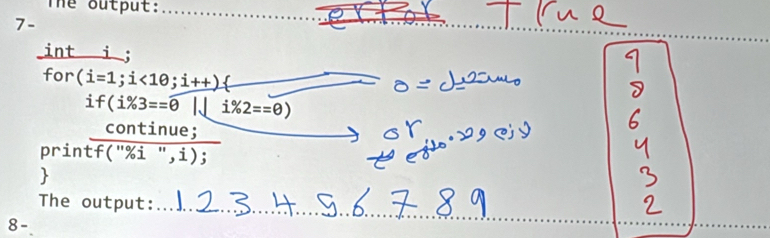 The output:.................... error True
7-
int i ;
for(i=1;i<10;i++){
if(i%3==0 || i%2==0)
continue;
printf("%i ",i);
}
The output:...1 2 3 4 5 6 7 8 9
8-
مستحيل = 0
or
لازم
9
8
6
4
3
2